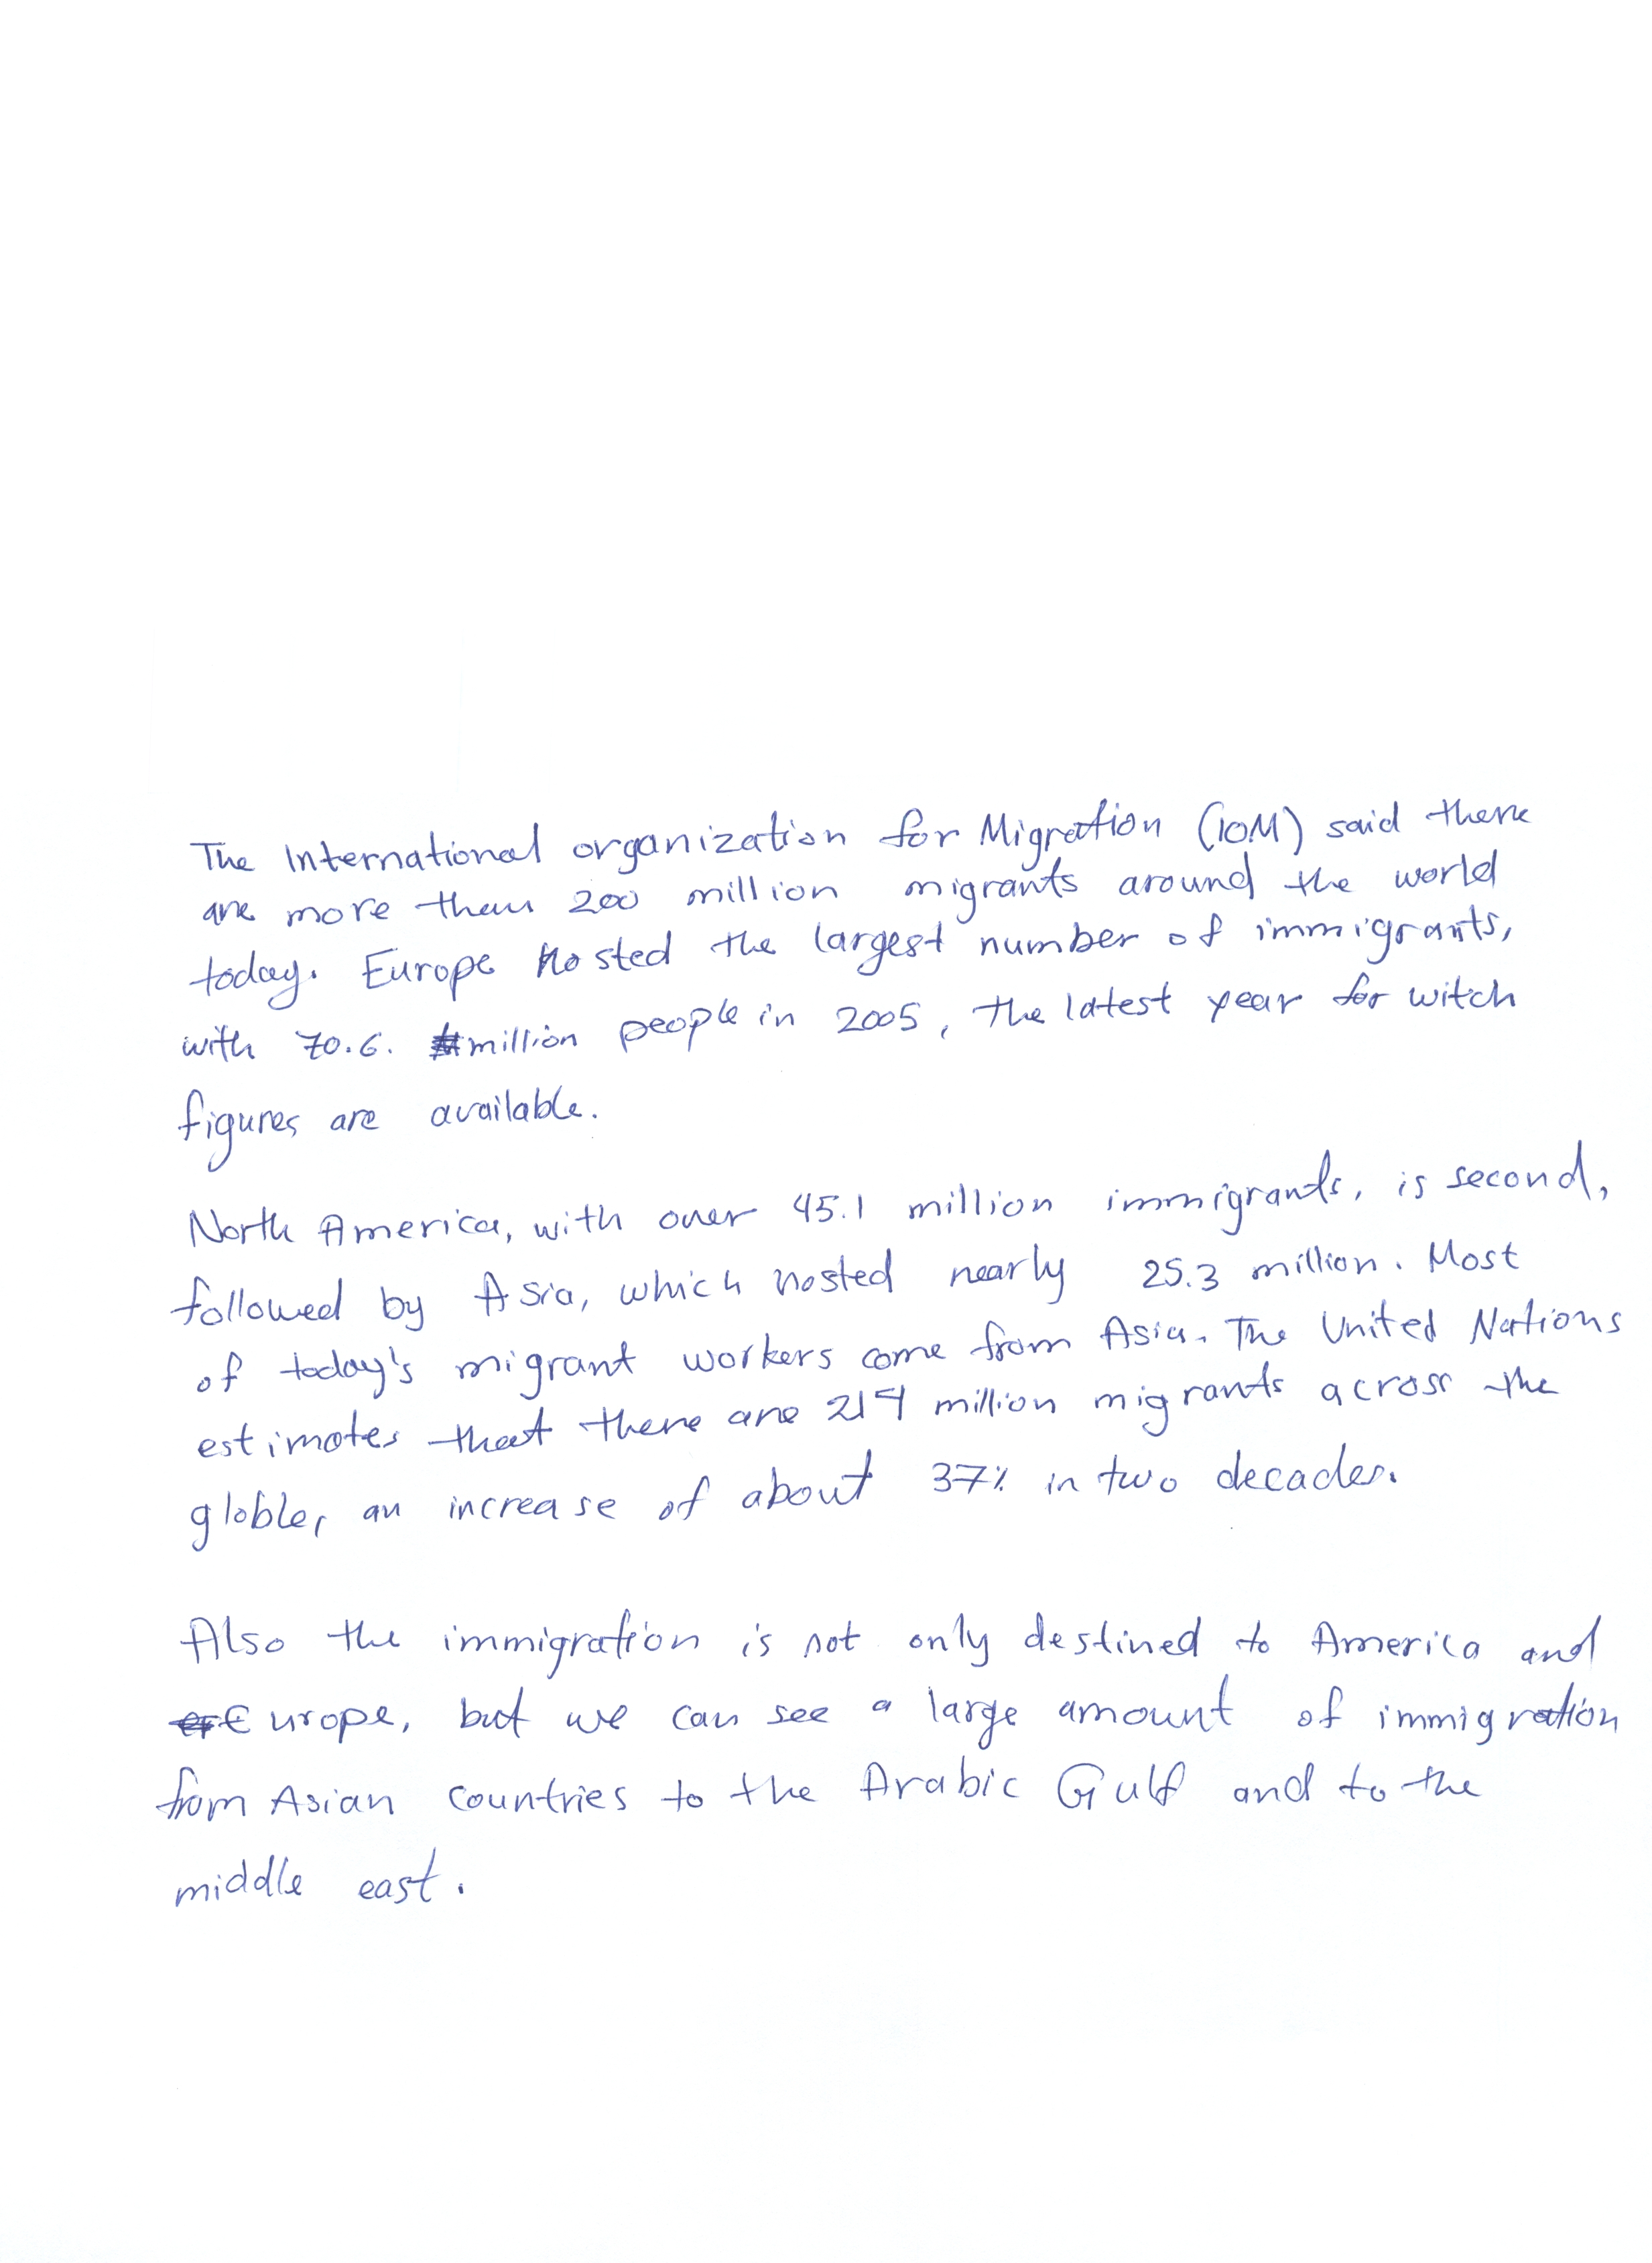 The International organization for Migration (IOM) said there
are more than 200 million migrants around the world
today. Europe hosted the largest number of immigrants,
with 70.6. million people in 2005, the latest year for witch
figures are available.
North America, with over 45.1 million immigrants, is second,
followed by Asia, which hosted nearly 25.3 million. Most
of today's migrant workers come from Asia. The United Nations
estimates that there are 214 million migrants across the
globle, an increase of about 37% in two decades.
Also the immigration is not only destined to America and
Europe, but we can see a large amount of immigration
from Asian countries to the Arabic Gulf and to the
middle east.